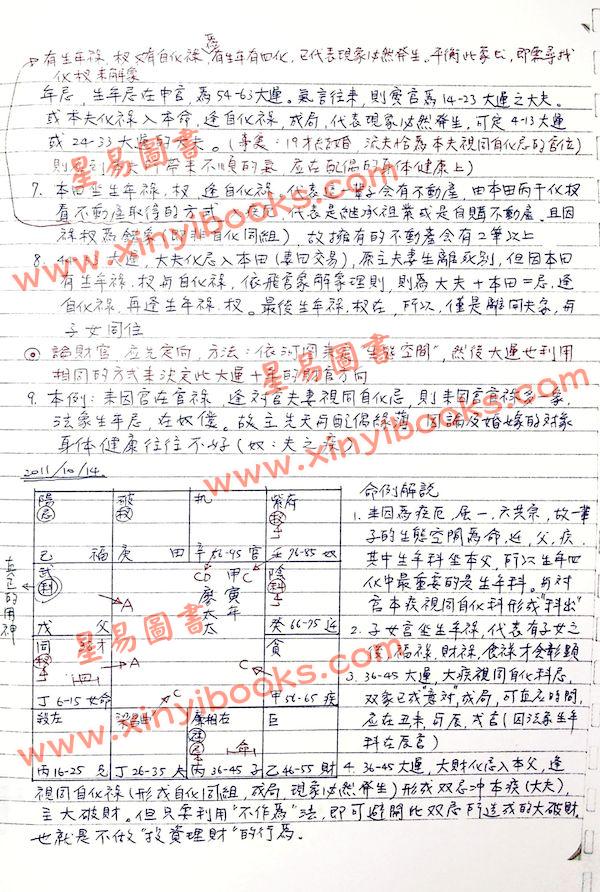 有生年祿、权又有自化祿,有生年有四化,已代表現象必然發生。平衡此象已,即需尋找
化权來解象
年忌,生年忌在中宮,為54-63大運。氣言往來,則實宮為14-23大運之大夫。
或本夫化祿入本命,逢自化祿,成局,代表現象必然發生,可定4-13大運
或24-33大運的大夫。(事実:19才結婚,流夫恰為本夫視同自化忌的宮位)
不順的氣,应在配偶的身体健康上)
7. 本田坐生年祿、权,逢自化祿,代表這一輩子会有不動產,由本田丙干化权
看不動產取得的方式 代表是継承祖業或是自購不動產。且因
祿权為 (即非自化同組),故擁有的不動產会有2筆以上
8. 大運,大夫化忌入本田(妻田交易),原主夫妻生離死別,但因本田
有生年祿、权与自化祿,依飛宮象解象理則,則為大夫+本田=忌,逢
自化祿,再逢生年祿、权。最後生年祿、权在,所以,僅是離同夫妻,与
子女同住
◎ 論財官,应先定向,方法:依河図 "生態空間",然後大運也利用
相同的方式來決定此大運 的財官方向
9. 本例:來因宮在官祿,逢对宮夫妻視同自化忌,則來因宮官祿多一象,
法象生年忌,在奴僕。故主先天与配偶緣薄,因論及婚嫁的对象
身体健康往往不好(奴:夫之疾)
2011/10/14.
陽
忌
己 福
破
权
庚 田
机
辛 56-45 官
紫府
权
壬 76-85 奴
武
科
戊 父
A
CD 甲C
廖 寅
太 年
太
陰
科
癸 66-75 迁
同
权
36才
四
A
丁 6-15 女命
C
C
貪
甲 56-65 疾
殺左
丙 16-25 兄
梁昌曲
丁 26-35 夫
廉相右
祿
忌
命
丙 36-45 子
巨
乙 46-55 財
真全的用神
命例解說
1. 來因為疾厄,屬一、六共宗,故一輩
子的生態空間為命、迁、父、疾,
其中生年科坐本父,所以生年四
化中最重要的是生年科。与对
宮本疾視同自化科形成"科出"
2. 子女宮坐生年祿,代表有子女之
後,福祿、財祿、食祿才会彰顯
3. 36-45大運,大疾視同自化科忌,
双象已成"意对",成局,可應忌時間,
忌在丑未,辰,戌宮(因法象生年
科在辰宮)
4. 36-45大運,大財化忌入本父,逢
視同自化祿(形成自化同組,成局,現象必然發生)形成双忌冲本疾(大夫),
主大破財。但只要利用"不作為"法,即可避開此双忌所造成的大破財,
也就是不做"投資理財"的行為。
星易圖書
www.xinyibooks.com
星易圖書
www.xinyibooks.com
星易圖書
www.xinyibooks.com
星易圖書
www.xinyibooks.com